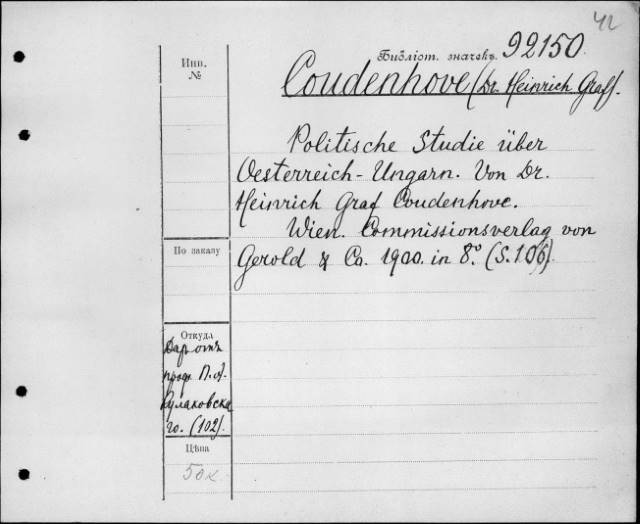 42
Библіот. значекъ 92150.
Инв.
№
Coudenhove (Dr. Heinrich Graf).
Politische Studie über
Oesterreich-Ungarn. Von Dr.
Heinrich Graf Coudenhove.
Wien. Commissionsverlag von
Gerold & Co. 1900. in 8°. (S. 106).
По заказу
Откуда
Даръ отъ
проф. П. А.
Кулаковска
го. (102).
Цѣна
50к